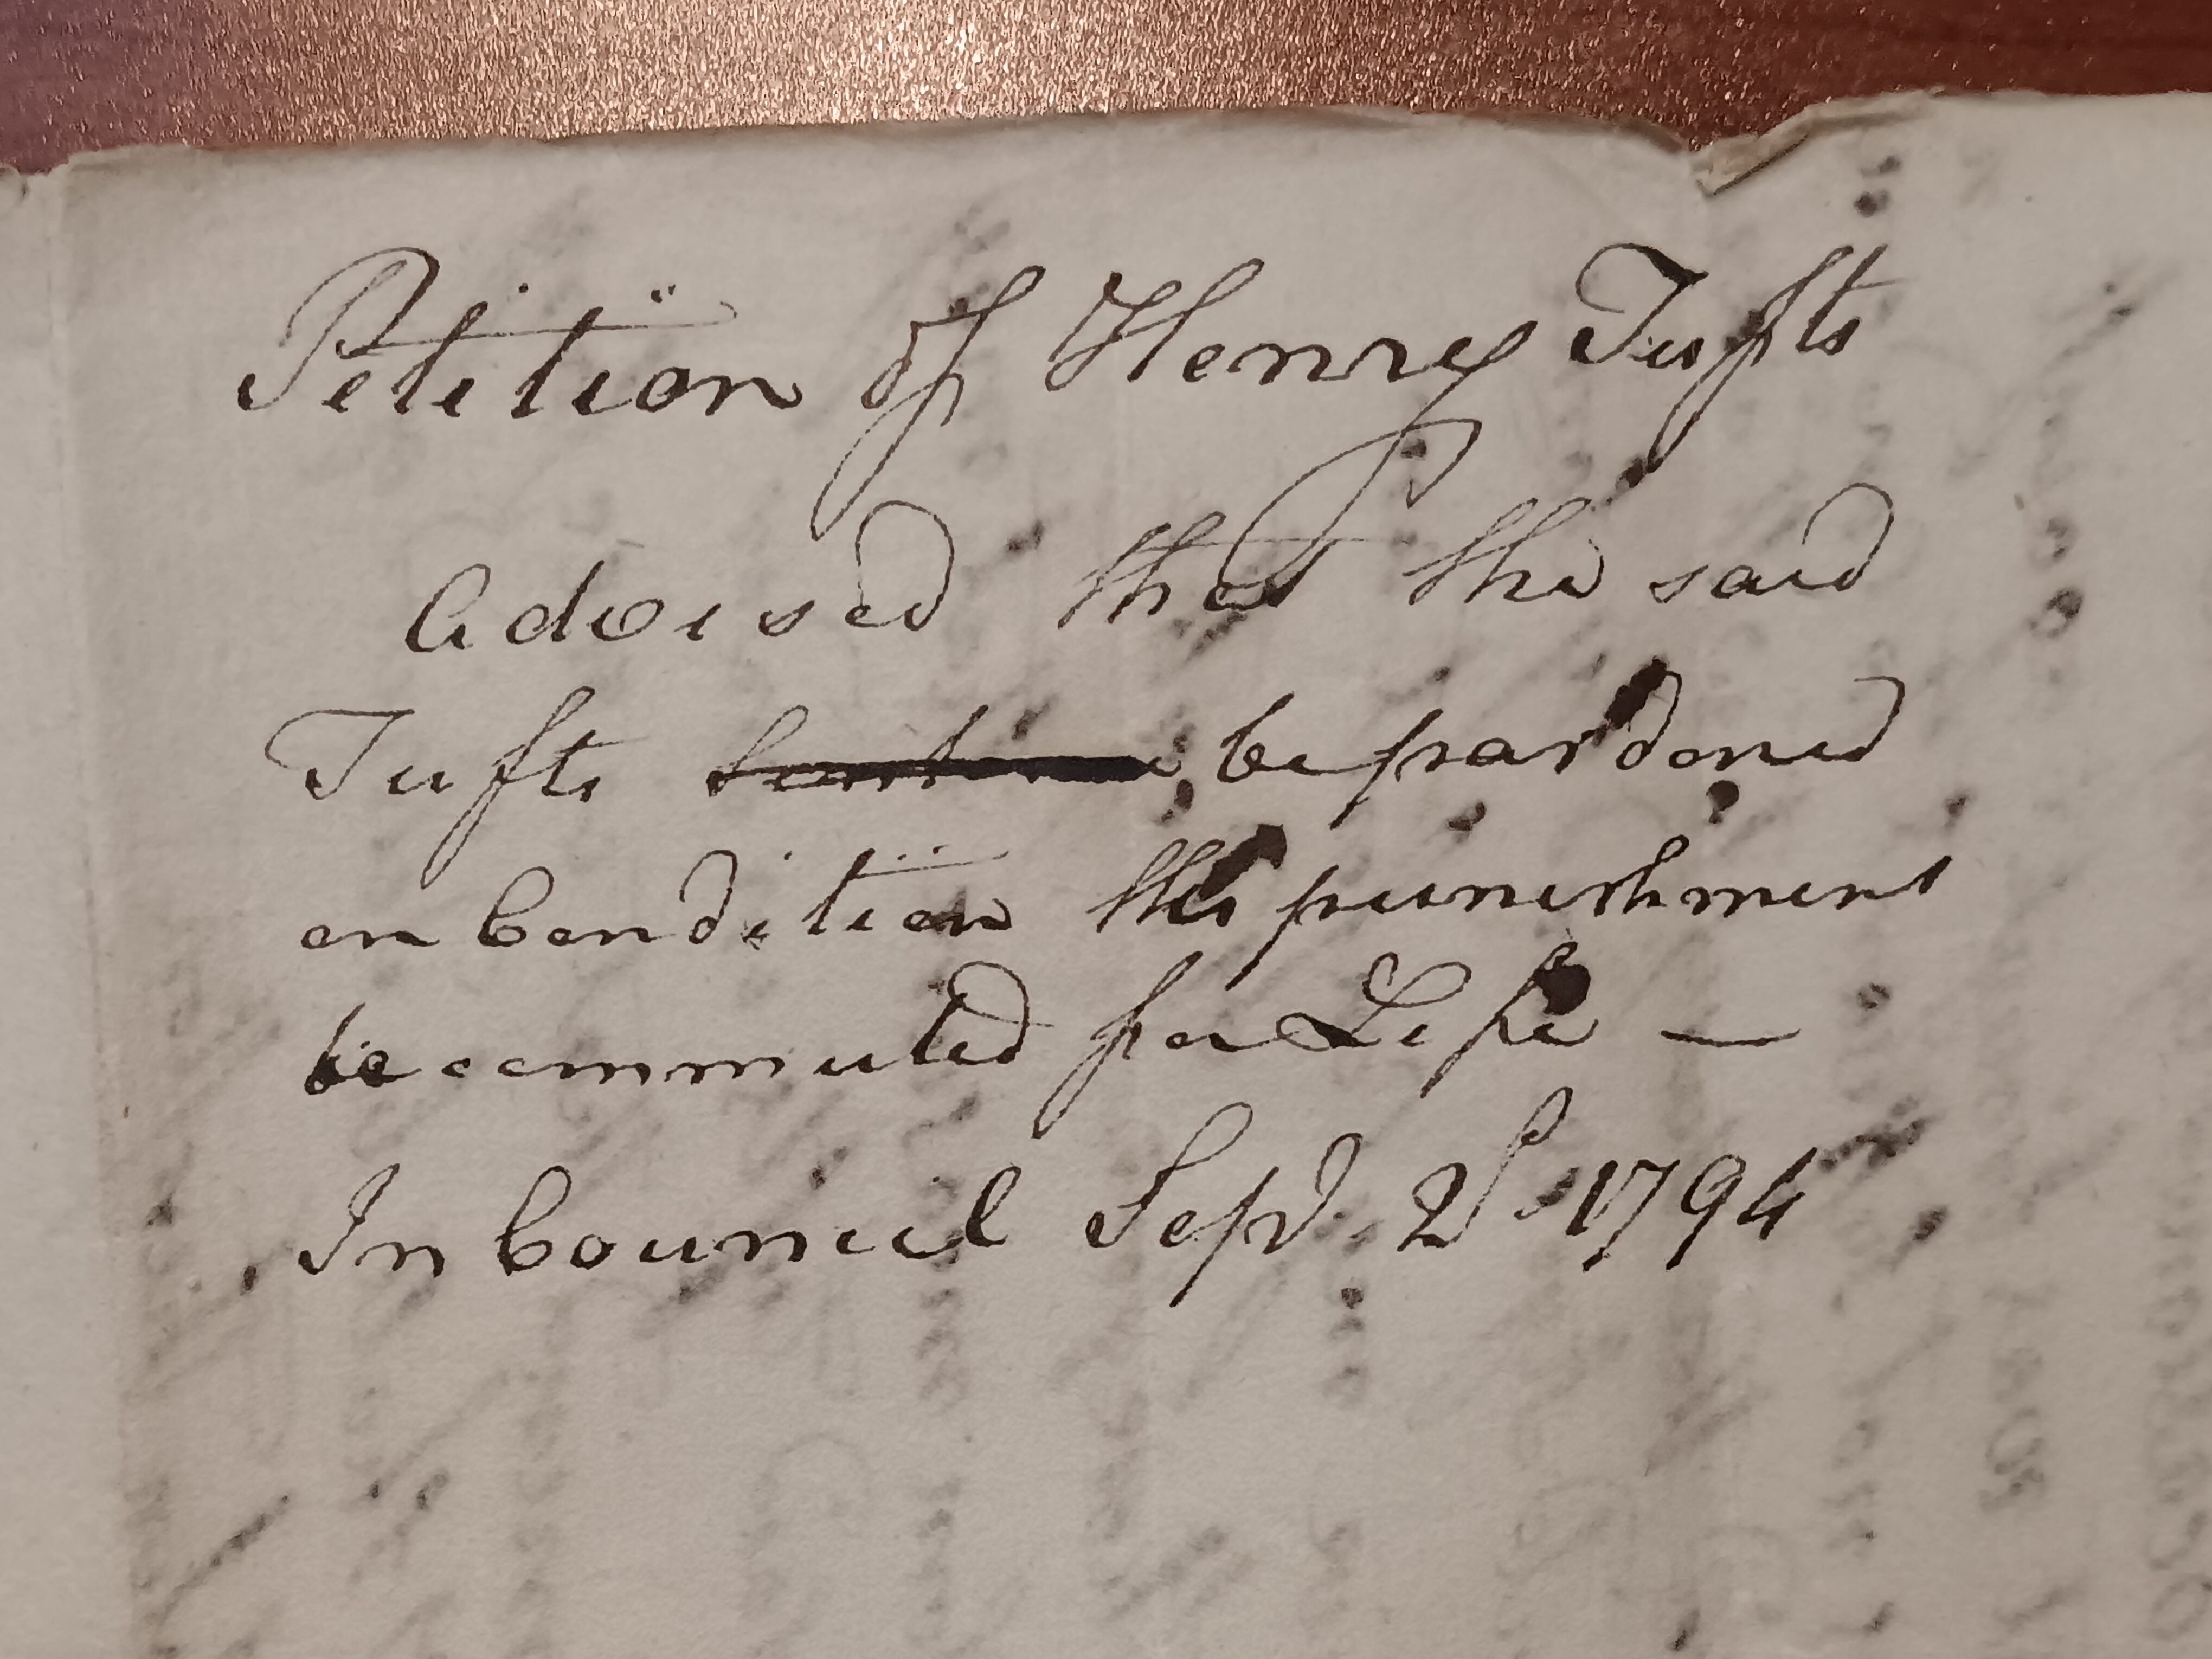 Petition of Henry Tufts
Advised that the said
Tufts be pardoned
on Condition his punishment
be commuted for Life —
In Council Sepr. 2d 1794